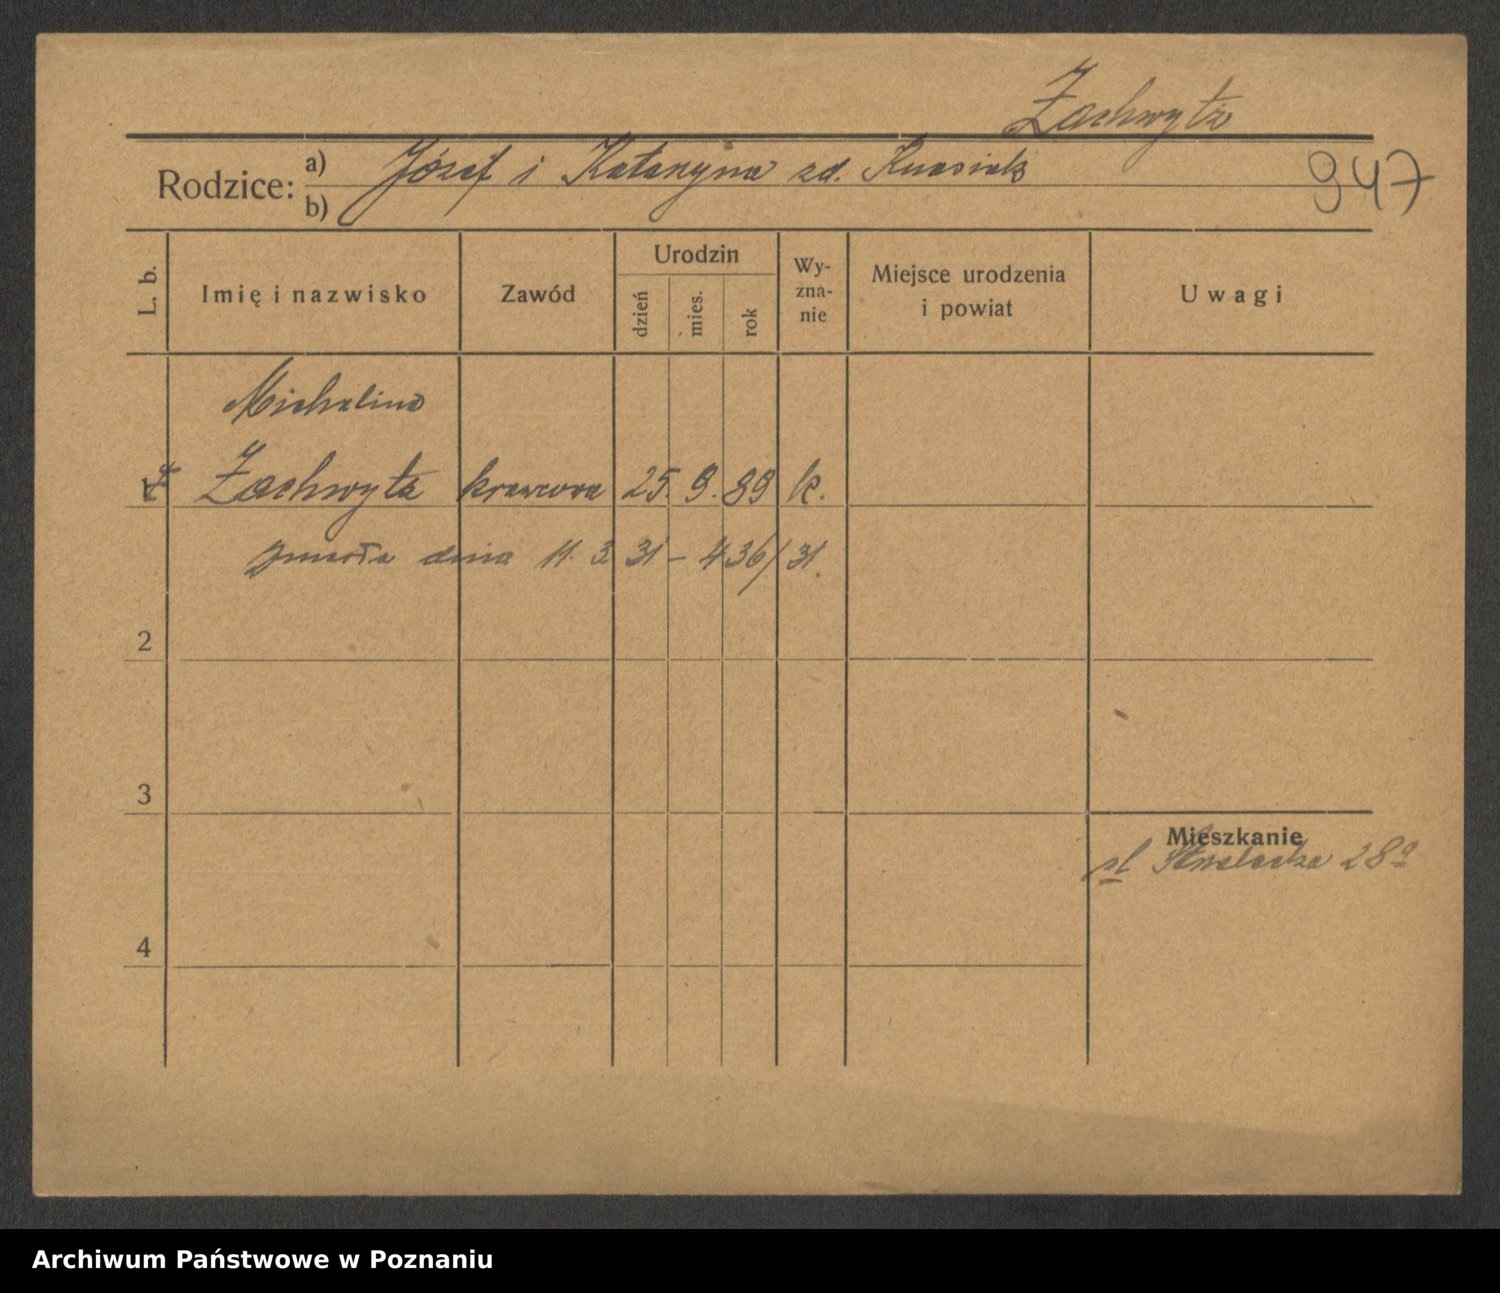 Zachwyta
Rodzice: a) Józef i Katarzyna zd. Kunasiak
b)
947
L. b.
Imię i nazwisko
Zawód
Urodzin
dzień
mies.
rok
Wy-
zna-
nie
Miejsce urodzenia
i powiat
Uwagi
Michalina
1 Zachwyta krawcowa 25. 9. 89 k.
zmarła dnia 11. 3. 31 – 436/31.
2
3
Mieszkanie
ul Strzelecka 28a
4
Archiwum Państwowe w Poznaniu